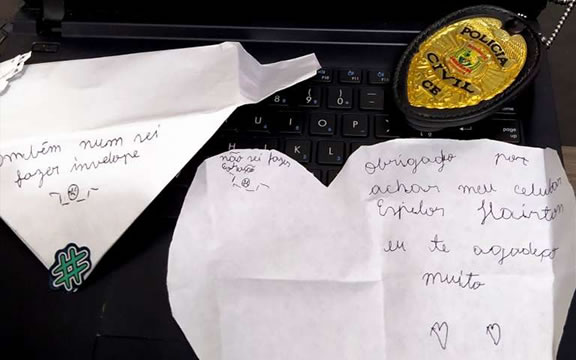 ombém num sei
fazer invelope
não sei fazer
Obrigado por
achar meu celular
Hairton
eu te agadeço
muito
POLÍCIA
CIVIL
CE
#
U I O P
J K L